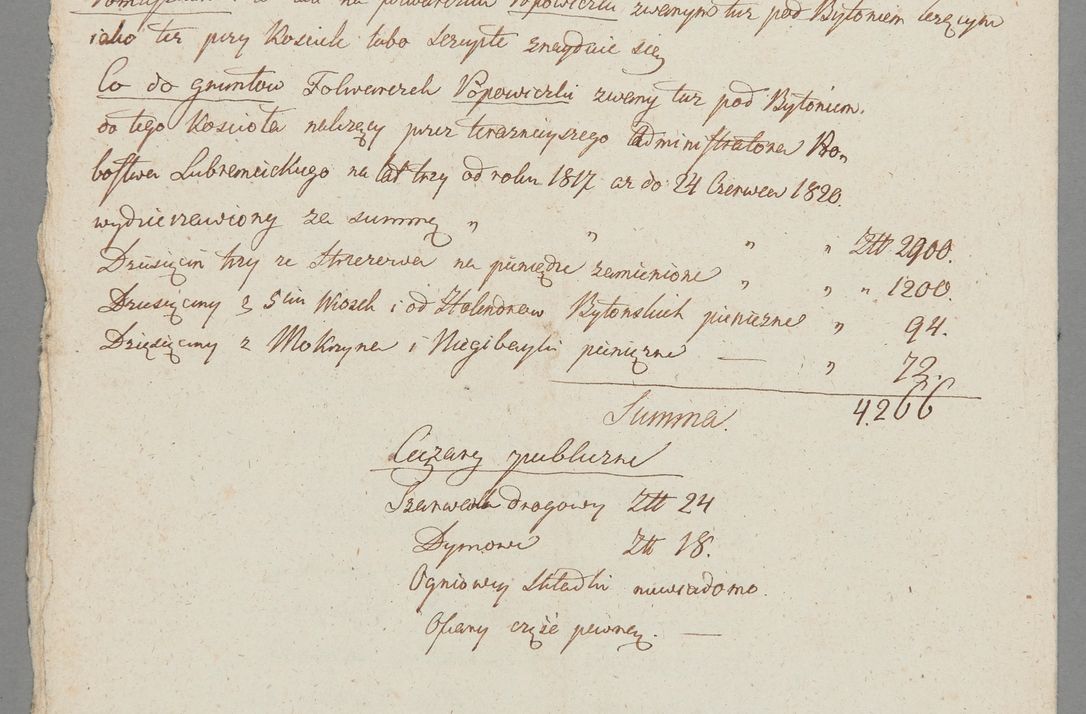 na folwarczku Popowiczki zwanym tuż pod Bytoniem leżącym
iako też przy Kosciele lubo szczupłe znayduie się
Co do gruntow Folwarczek Popowiczki zwany tuż pod Bytoniem.
do tego Koscioła należący przez teraznieyszego Administratora Pro„
bostwa Lubranickiego na lat trzy od roku 1817 aż do 24 Czerwca 1820.
wydzierzawiony za summę „ „ „ „ Złtt 2900.
Dziesięcin trzy ze Strzezewa na pieniądze zamienione „ „ „ 1200.
Dziesięciny z 5ciu Wiosek i od Holendrow Bytońskich pieniężne „ 94.
Dziesięciny z Mokryna i Niegibalyk pieniężne — „ 72.
Summa. 4.266
Ciężary publiczne
Szarwark drogowy Złtt 24
Dymowe Złtt 18.
Ogniowey Składki niewiadomo.
Ofiary część pewney. —